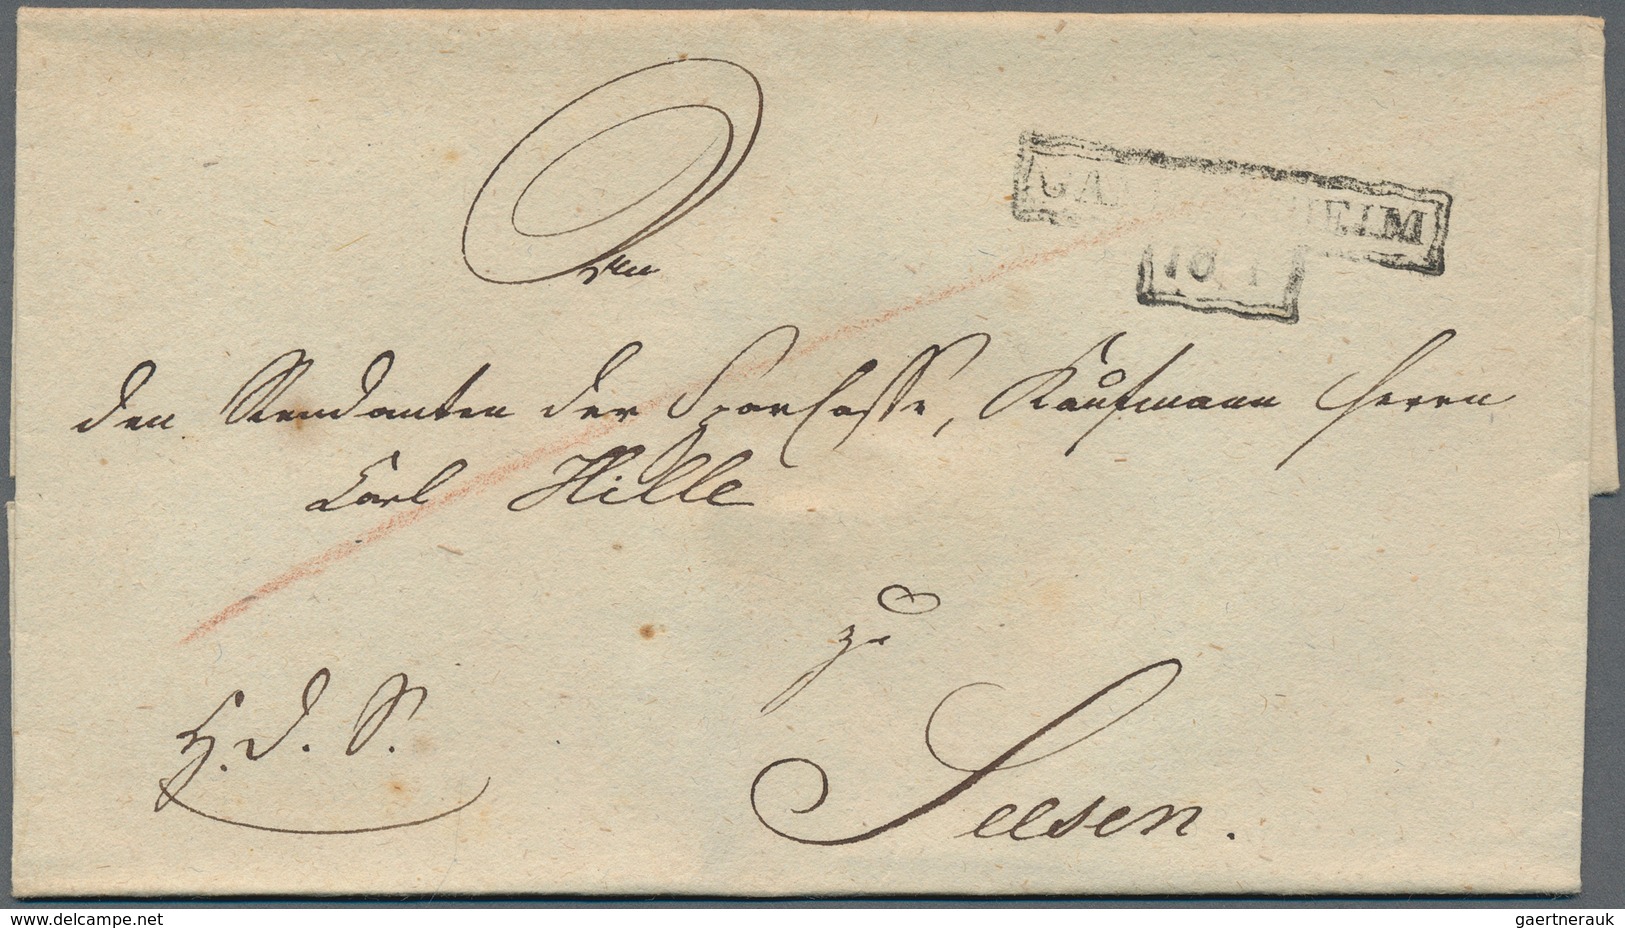 An
GA HEIM
den Rendanten der Sparcasse, Kaufmann Herrn
Carl Hille
zu
H. d. S.
Seesen.
www.delcampe.net
gaertnerauk